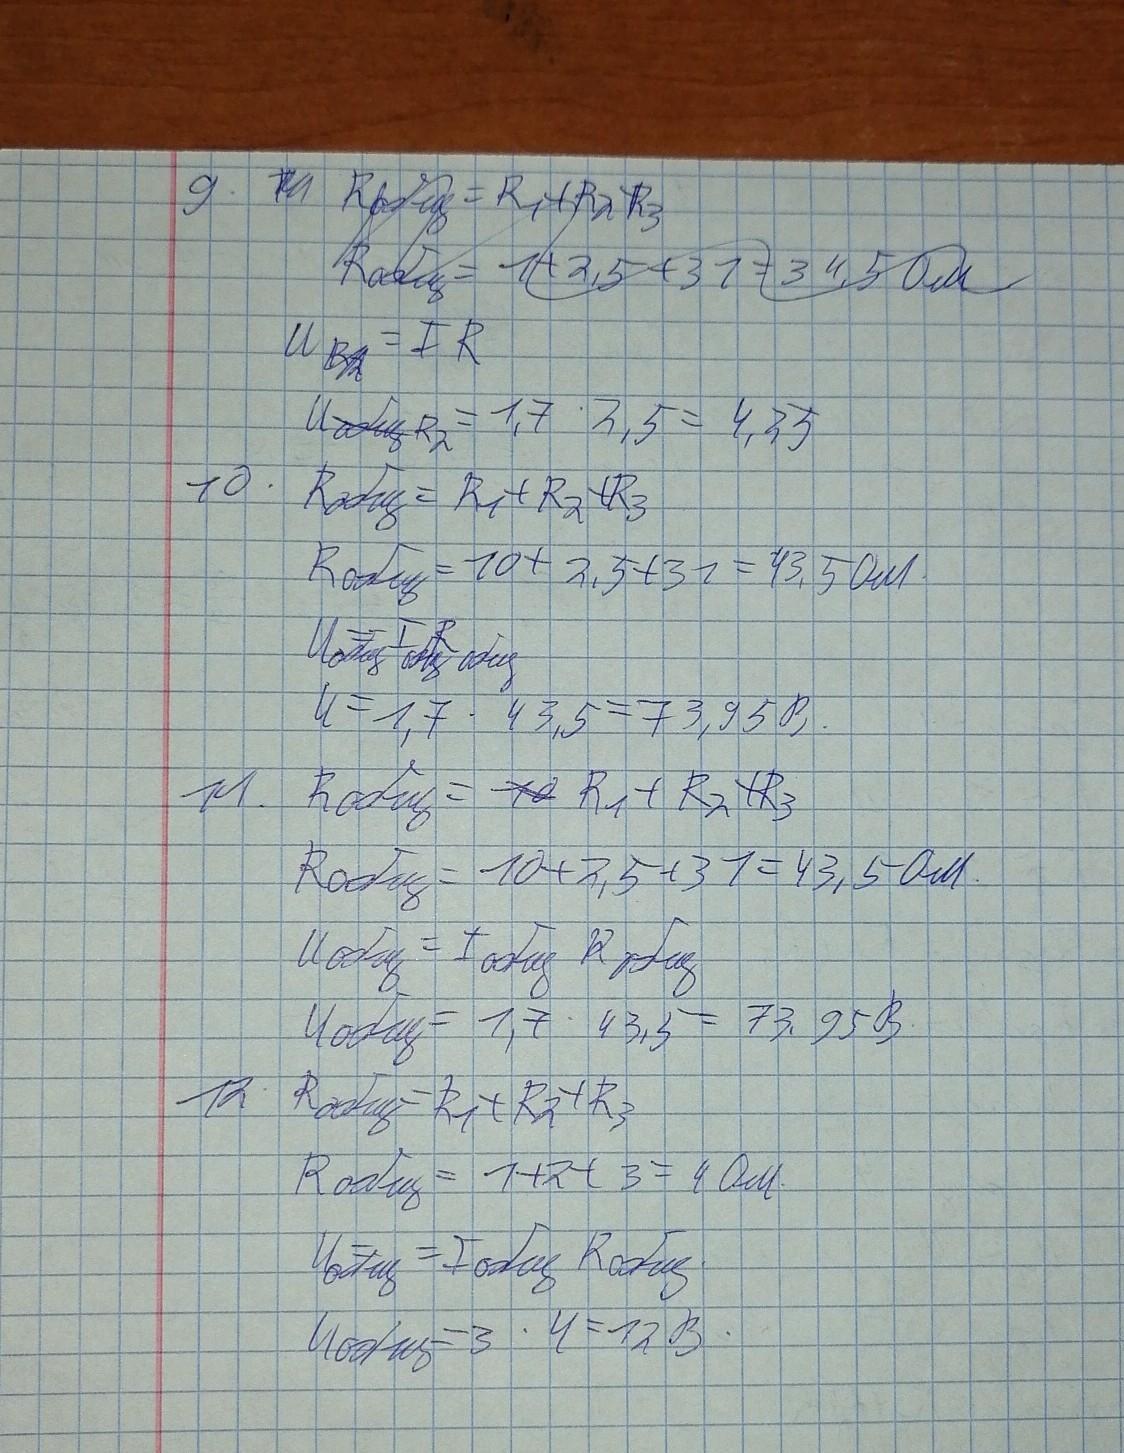 9. Rобщ = R1 + R2 + R3
Rобщ = 1 + 2,5 + 31 = 34,5 Ом
U = I R
UR2 = 1,7 · 2,5 = 4,25
10. Rобщ = R1 + R2 + R3
Rобщ = 10 + 2,5 + 31 = 43,5 Ом.
Uобщ = Iобщ Rобщ
U = 1,7 · 43,5 = 73,95 В.
11. Rобщ = R1 + R2 + R3
Rобщ = 10 + 2,5 + 31 = 43,5 Ом.
Uобщ = Iобщ Rобщ
Uобщ = 1,7 · 43,5 = 73,95 В.
12 Rобщ = R1 + R2 + R3
Rобщ = 1 + 2 + 3 = 4 Ом.
Uобщ = Iобщ Rобщ.
Uобщ = 3 · 4 = 12 В.